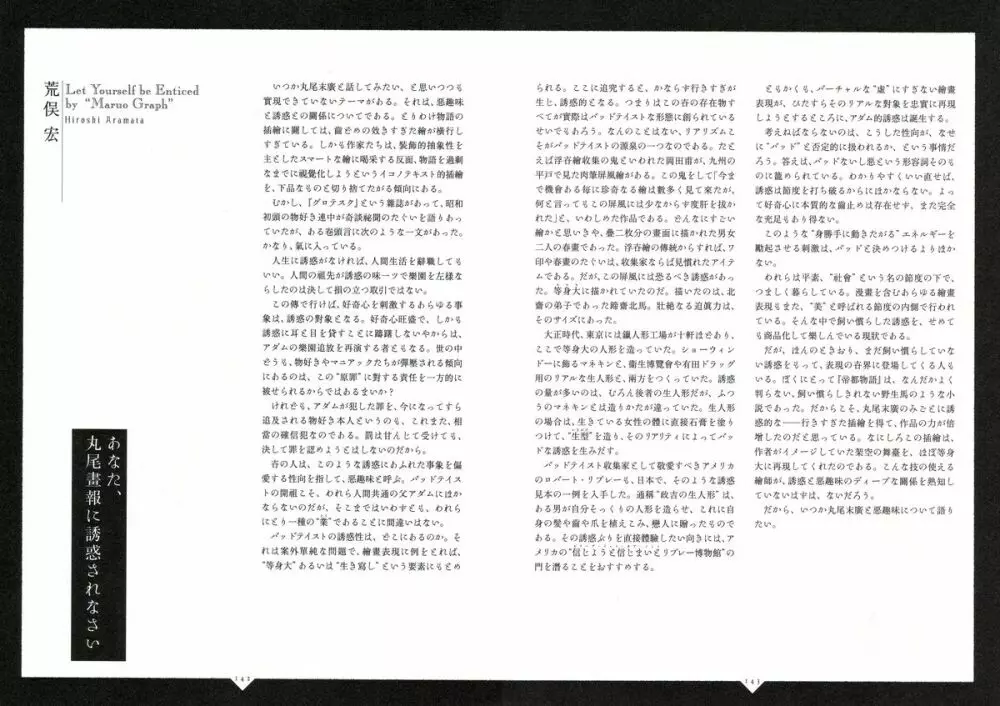 荒俣 宏
Let Yourself be Enticed
by "Maruo Graph"
Hiroshi Aramata
あなた、
丸尾畫報に誘惑されなさい
いつか丸尾末廣と話してみたい、と思いつつも
實現できていないテーマがある。それは、悪趣味
と誘惑との關係についてである。とりわけ物語の
插繪に關しては、齒止めの效きすぎた繪が横行し
すぎている。しかも作家たちは、装飾的抽象性を
主としたスマートな繪に喝采する反面、物語を過剰
なまでに視覺化しようというイコノテキスト的插繪
を、下品なものと切り捨てたがる傾向にある。
むかし、『グロテスク』という雜誌があって、昭和
初頭の物好き連中が奇談祕聞のたぐいを語りあっ
ていたが、ある巻頭言に次のような一文があった。
かなり、氣に入っている。
人生に誘惑がなければ、人間生活を辭職しても
いい。人間の祖先が誘惑の味一ツで樂園を左樣な
らしたのは決して損の立つ取引ではない。
この傳で行けば、好奇心を刺激するあらゆる事
象は、誘惑の對象となる。好奇心旺盛で、しかも
誘惑に耳と目を貸すことに躊躇しないやからは、
アダムの樂園追放を再演する者ともなる。世の中
どうも、物好きやマニアックたちが彈壓される傾向
にあるのは、この“原罪”に對する責任を一方的に
被せられるからではあるまいか？
けれども、アダムが犯した罪を、今になってすら
追及される物好き本人というのも、これまた、相
當の確信犯なのである。罰は甘んじて受けても、
決して罪を認めようとはしないのだから。
世の人は、このような誘惑にあふれた事象を偏
愛する性向を指して、悪趣味と呼ぶ。バッドテイスト
の開祖こそ、われら人間共通の父アダムにほか
ならないのだが、そこまではいわずとも、われら
にとり一種の“業”であることに間違いはない。
バッドテイストの誘惑性は、どこにあるのか。そ
れは案外單純な問題で、繪畫表現に例をとれば、
“等身大”あるいは“生き寫し”という要素にもとめ
られる。ここに追究すると、かならず行きすぎが
生じ、誘惑的となる。つまりはこの世の存在物す
べてが實際はバッドテイストな形態に創られている
せいでもあろう。なんのことはない、リアリズムこ
そがバッドテイストの源泉の一つなのである。たと
えば浮世繪收集の鬼といわれた岡田甫が、九州の
平戸で見た肉筆屏風繪がある。この鬼をして「今ま
で機會ある毎に珍奇なる繪は數多く見て來たが、
何と言ってもこの屏風には少なからず度肝を抜か
れた」と、いわしめた作品である。どんなにすごい
繪かと思いきや、疊二枚分の畫面に描かれた男女
二人の春畫であった。浮世繪の傳統からすれば、ワ
印や春畫のたぐいは、收集家ならば見慣れたアイテ
ムである。だが、この屏風には恐るべき誘惑があっ
た。等身大に描かれていたのだ。描いたのは、北
齋の弟子であった蹄齋北馬。壯絶なる迫眞力は、
そのサイズにあった。
大正時代、東京には鑞人形工場が十軒ほどあり、
ここで等身大の人形を造っていた。ショーウィン
ドーに飾るマネキンと、衛生博覽會や有田ドラッグ
用のリアルな生人形と、兩方をつくっていた。誘惑
の量が多いのは、むろん後者の生人形だが、ふつ
うのマネキンとは造りかたが違っていた。生人形
の場合は、生きている女性の體に直接石膏を塗り
つけて、“生型”を造り、そのリアリティによってバッ
ドな誘惑を生みだす。
バッドテイスト收集家として敬愛すべきアメリカ
のロバート・リプレーも、日本で、そのような誘惑
見本の一例を入手した。通稱“政吉の生人形”は、
ある男が自分そっくりの人形を造らせ、これに自
身の髪や齒や爪を植えこみ、戀人に贈ったもので
ある。その誘惑ぶりを直接體驗したい向きには、ア
メリカの“信じようと信じまいとリプレー博物館”の
門を潛ることをおすすめする。
ともかくも、バーチャルな“虚”にすぎない繪畫
表現が、ひたすらそのリアルな對象を忠實に再現
しようとするところに、アダム的誘惑は誕生する。
考えねばならないのは、こうした性向が、なぜ
に“バッド”と否定的に扱われるか、という事情だ
ろう。答えは、バッドないし悪という形容詞そのも
のに籠められている。わかりやすくいい直せば、
誘惑は節度を打ち破るからにほかならない。よっ
て好奇心に本質的な齒止めは存在せず、また完全
な充足もあり得ない。
このような“身勝手に動きたがる”エネルギーを
勵起させる刺激は、バッドと決めつけるよりほかな
い。
われらは平素、“社會”という名の節度の下で、
つつましく暮らしている。漫畫を含むあらゆる繪畫
表現もまた、“美”と呼ばれる節度の内側で行われ
ている。そんな中で飼い慣らした誘惑を、せめて
も商品化して樂しんでいる現狀である。
だが、ほんのときおり、まだ飼い慣らしていな
い誘惑をもって、表現の世界に登場してくる人も
いる。ぼくにとって『帝都物語』は、なんだかよく
判らない、飼い慣らしきれない野生馬のような小
説であった。だからこそ、丸尾末廣のみごとに誘惑
的な――行きすぎた插繪を得て、作品の力が倍
増したのだと思っている。なにしろこの插繪は、
作者がイメージしていた架空の舞臺を、ほぼ等身
大に再現してくれたのである。こんな技の使える
繪師が、誘惑と悪趣味のディープな關係を熟知し
ていないはずは、ないだろう。
だから、いつか丸尾末廣と悪趣味について語り
たい。
142
143